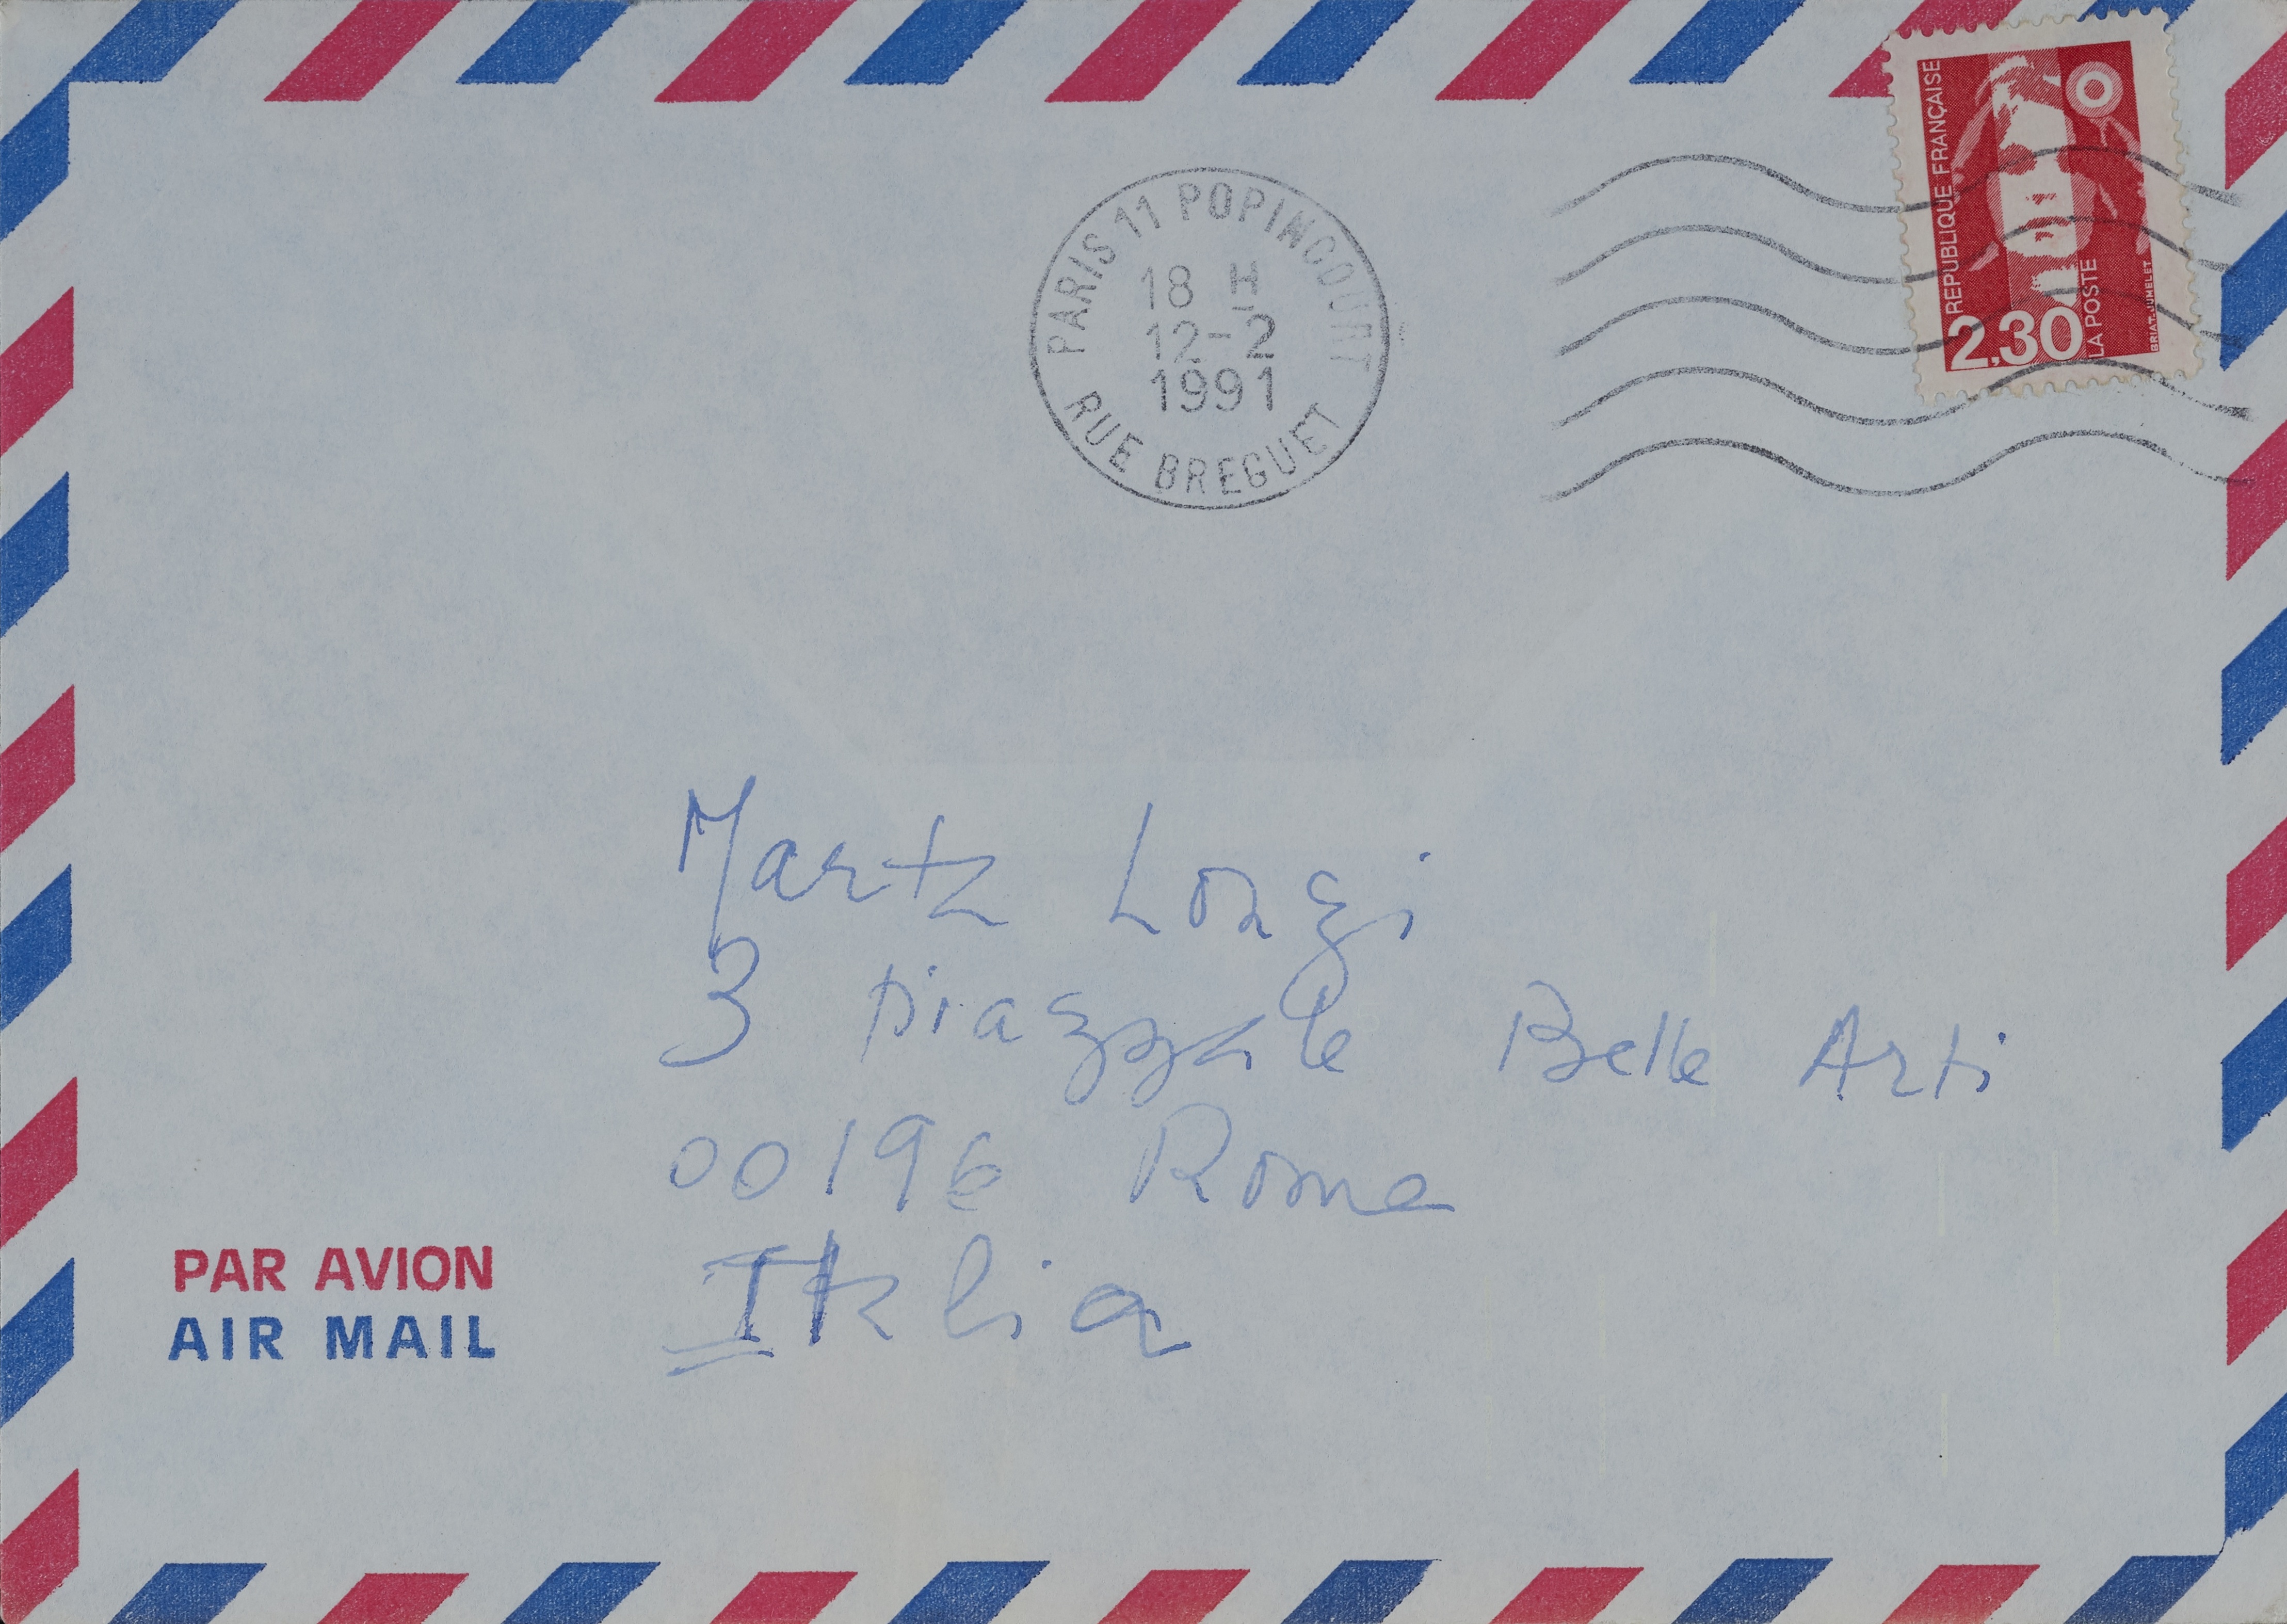 PARIS 11 POPINCOURT
18 H
12-2
1991
RUE BREGUET
REPUBLIQUE FRANÇAISE
2,30
LA POSTE
BRIAT-JUMELET
Marta Lonzi
3 piazzale Belle Arti
00196 Roma
Italia
PAR AVION
AIR MAIL